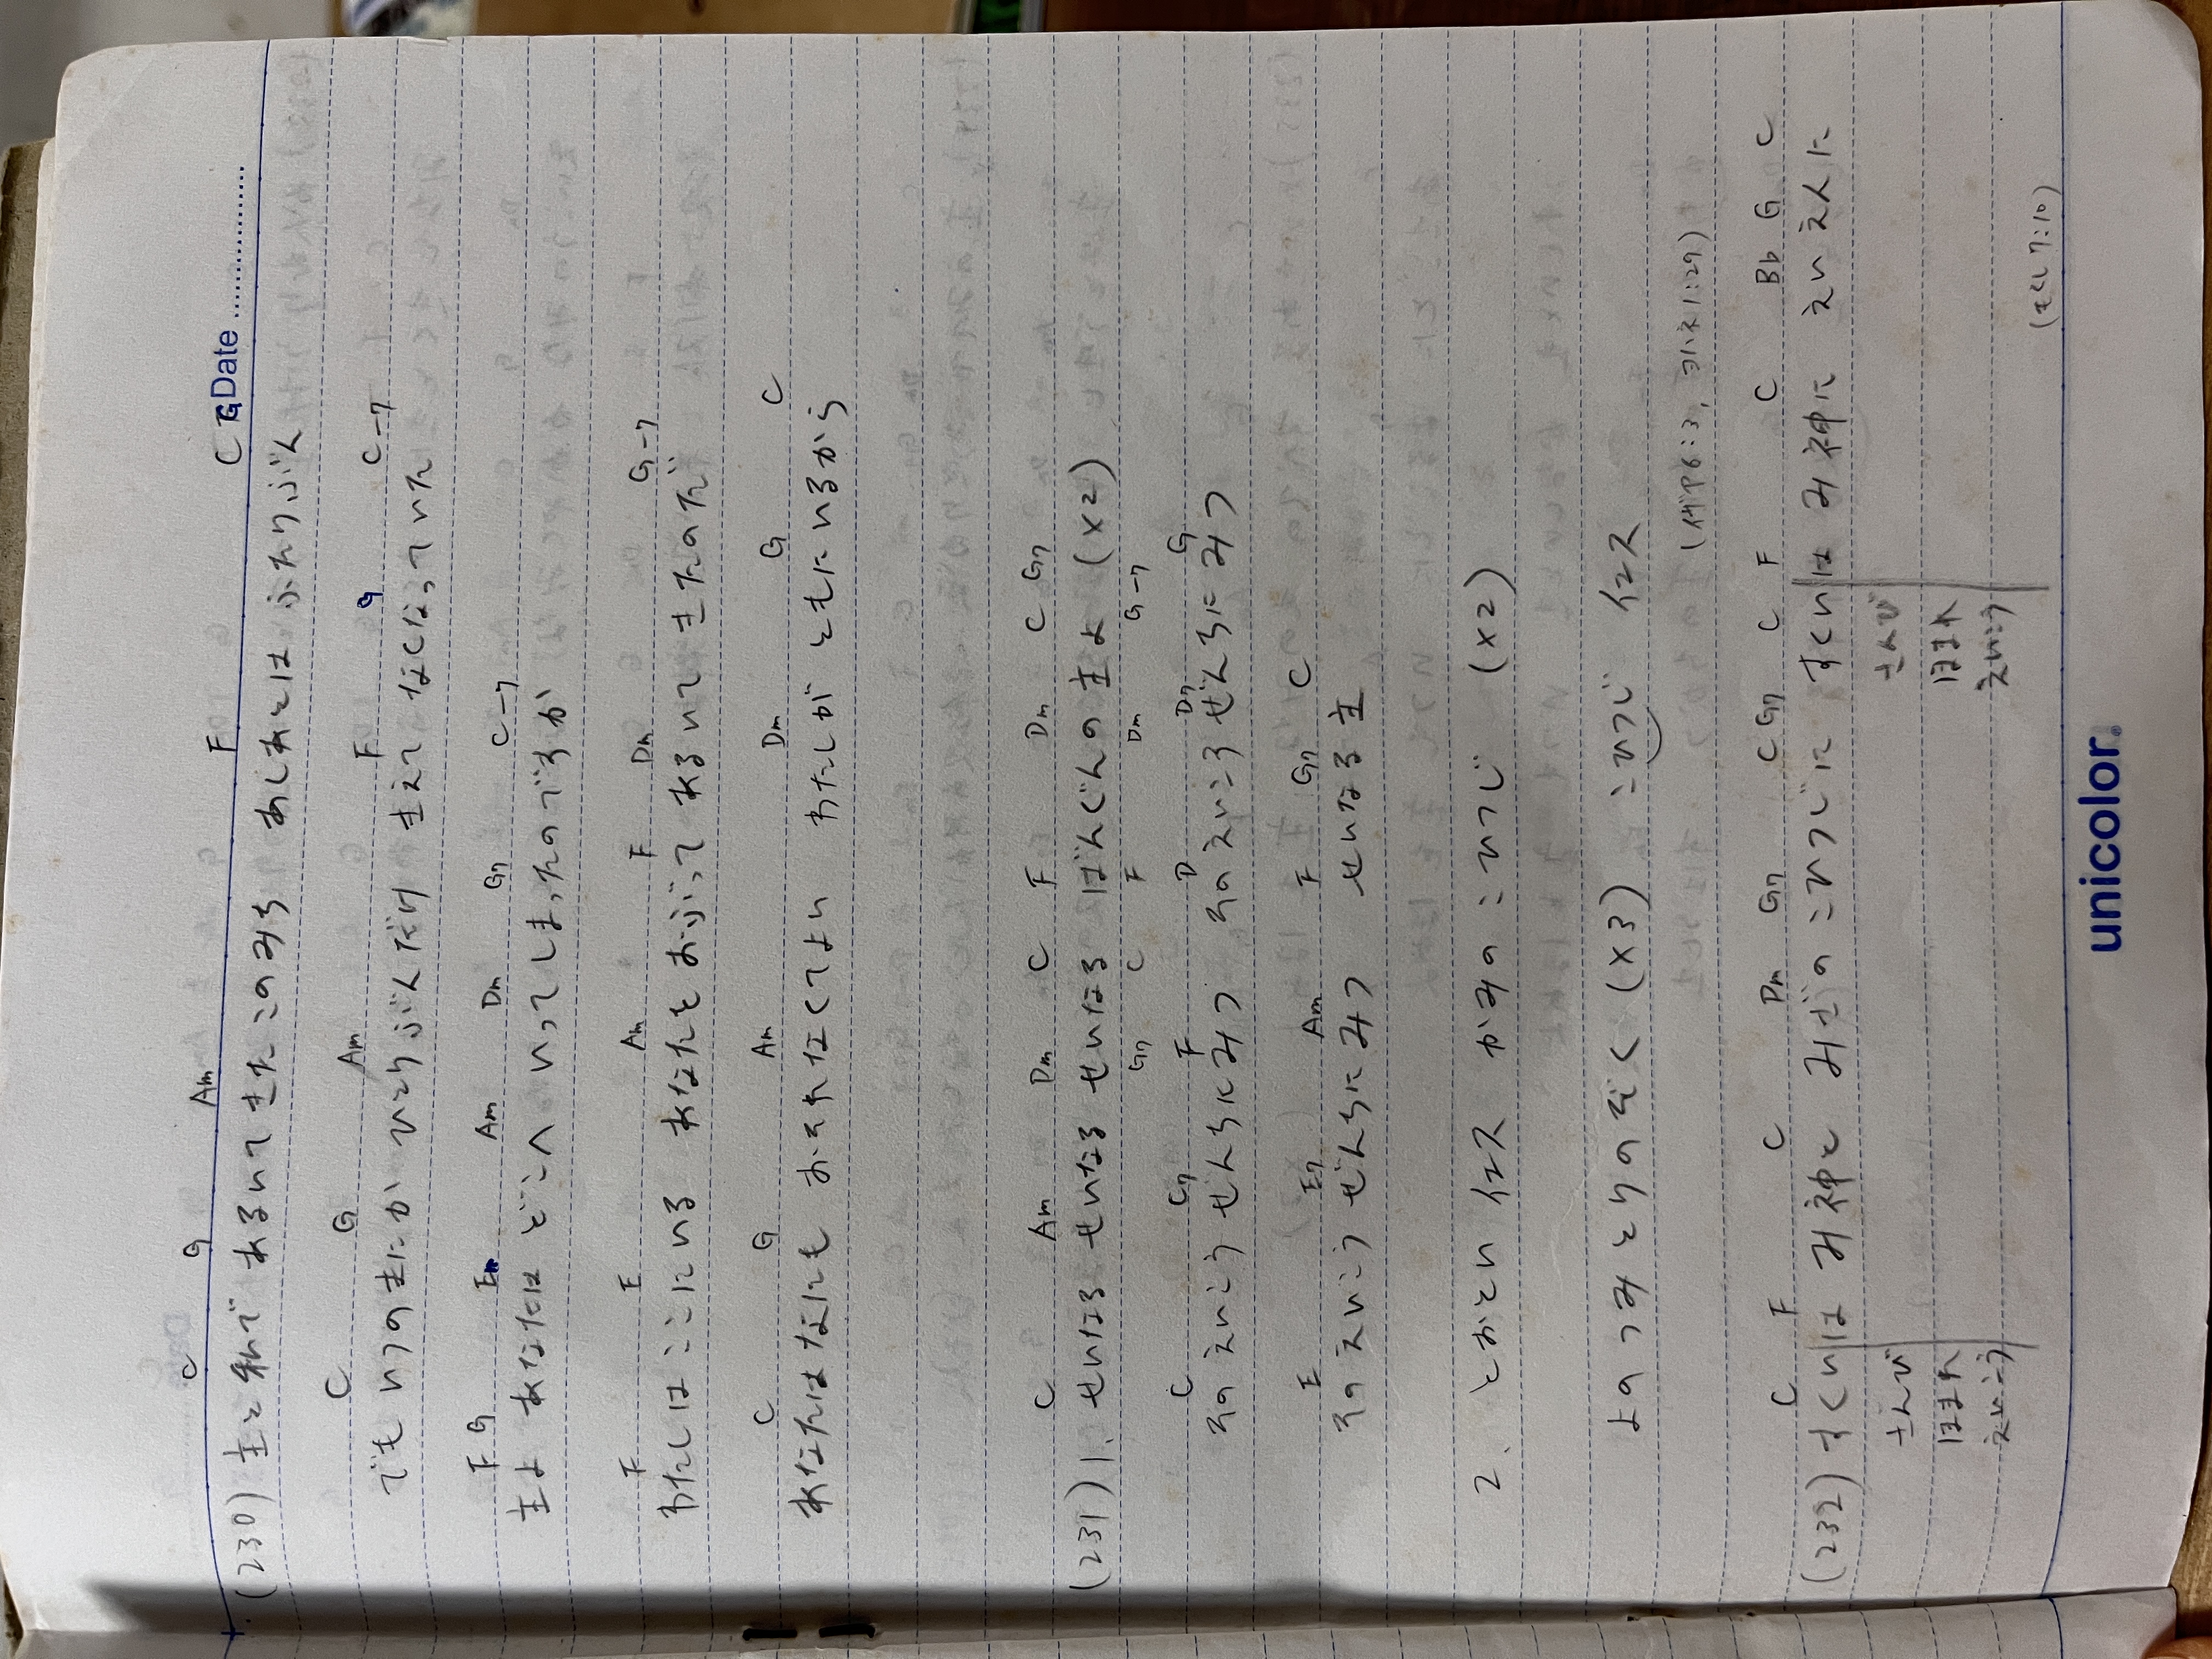 Date
C G Am F C G
(230) 主と私で あるいてきた このみち あしあとは ふたりぶん
C G Am F G C-7
でも いつのまにか ひとりぶんだけ きえて なくなっていた
F G Em Am Dm G7 C-7
主よ あなたは どこへ いってしまったのですか
F E Am F Dm G-7
わたしは ここにいる あなたをおぶって あるいてきたのだ
C G Am Dm G C
あなたはなにも おそれなくてよい わたしが ともにいるから
C Am Dm C F Dm C G7
(231) 1、せいなる せいなる せいなる ばんぐんの主よ (×2)
G7 C F Dm G-7
C C7 F D D7 G
そのえいこう ぜんちにみつ そのえいこう ぜんちにみつ
E E7 Am F G7 C
そのえいこう ぜんちにみつ せいなる主
2、とおとい イエス かみの こひつじ (×2)
よのつみ とりのぞく (×3) こひつじ イエス
(イザヤ6:3, ヨハネ1:29)
C F C Dm G7 C G7 C F C Bb G C
(232) すくいは み神と みざの こひつじに すくいは み神に えいえんに
さんび さんび
ほまれ ほまれ
えいこう えいこう
(もくし7:10)
unicolor